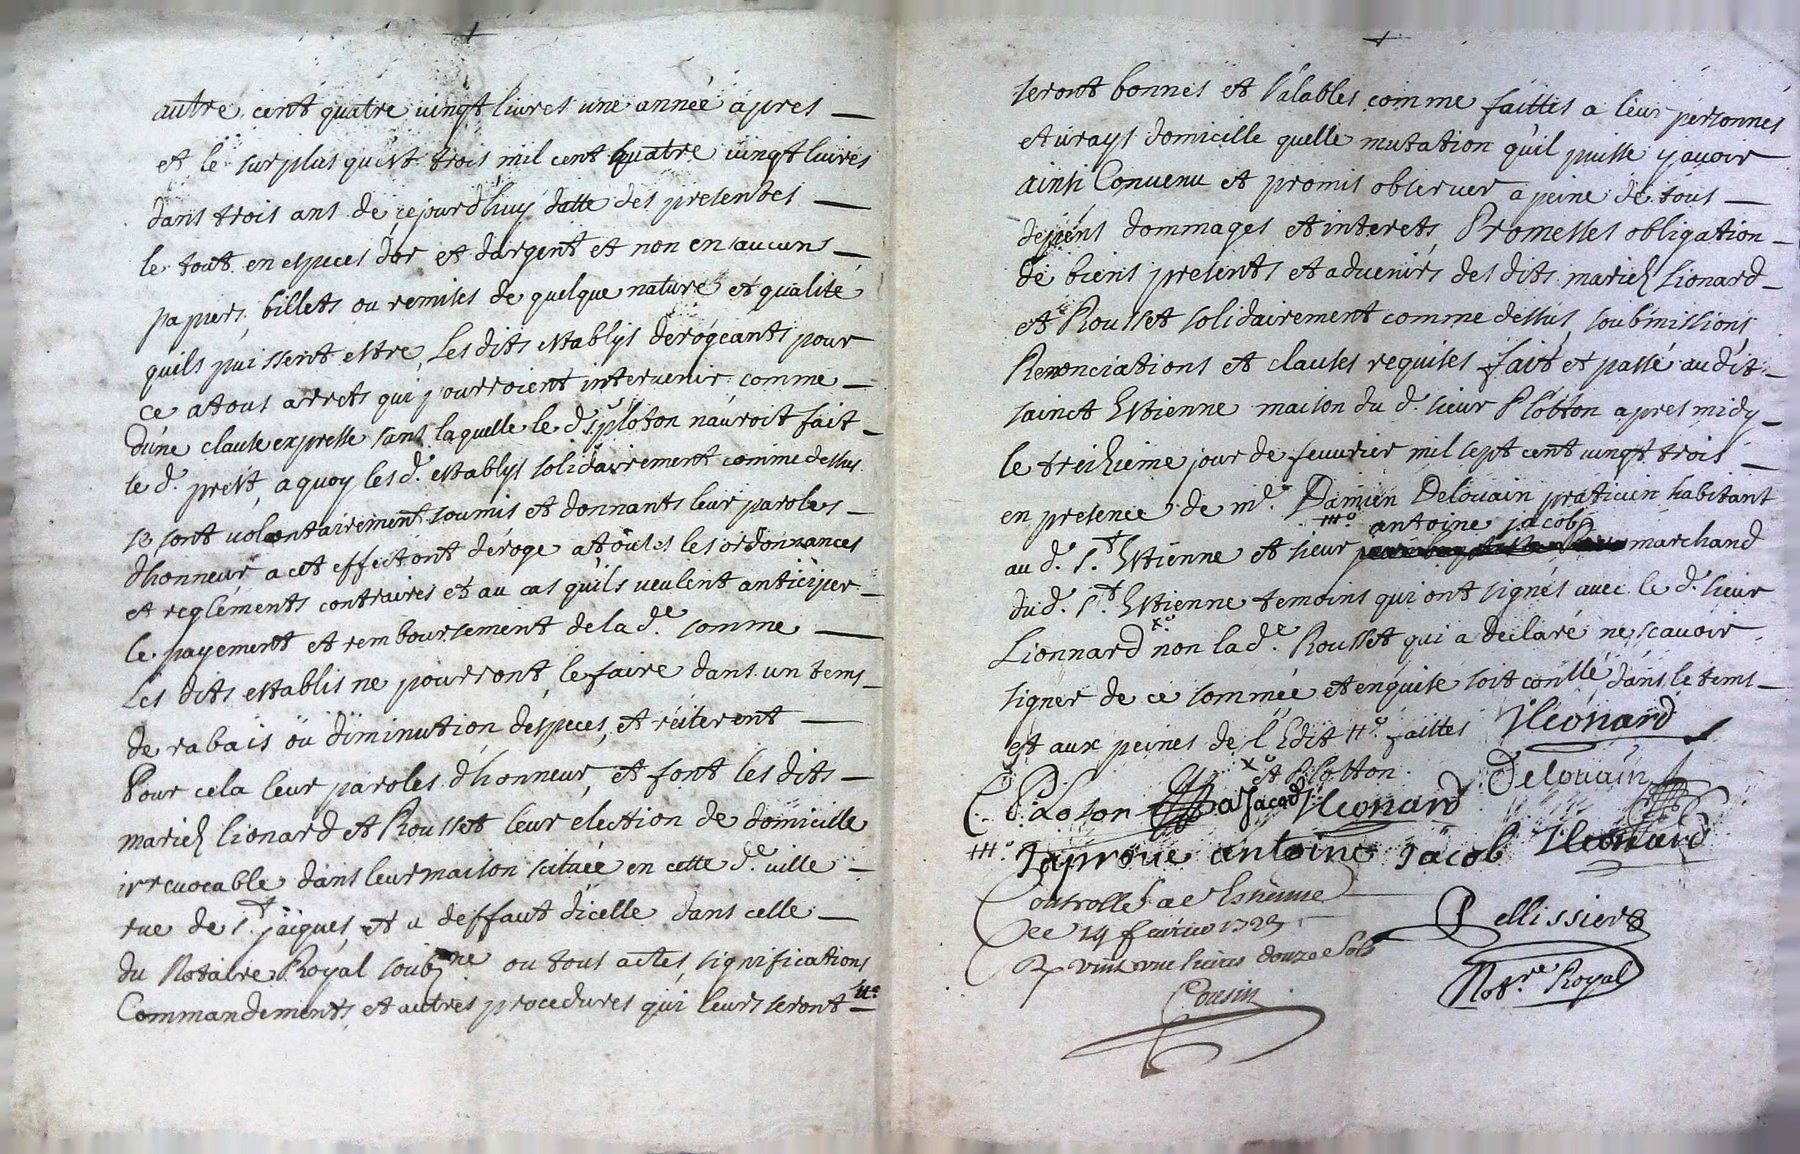 autre cent quatre vingt livres une année apres
et le surplus quest trois mil cent quatre vingt livres
dans trois ans de cejourdhuy datte des presentes
le tout en especes dor et dargent et non en aucuns
papiers, billets ou remises de quelque nature et qualité
quils puissent estre, Les dits establys derogeants pour
ce a tous arrets qui pourroient intervenir comme
dune clause expresse sans laquelle le d. sr ploton nauroit fait
le d. prest, a quoy les d. establys solidairement comme dessus
se sont volontairement soumis et donnants leur paroles
dhonneur a cet effect ont deroge a toutes les ordonnances
et reglements contraires et au cas quils veulent anticiper
le payement et remboursement de la de. somme
Les dits establis ne pourront le faire dans un tems
de rabais ou diminution despeces, et reiterent
Pour cela leur paroles dhonneur, et font les dits
mariez lionard et Rousset leur election de domicille
irrevocable dans leur maison scituée en cette de. ville
rue de st. jacques et a deffaut dicelle dans celle
du Notaire Royal soubne ou tous actes, significations
Commandements, et autres procedures qui leurs seront
seront bonnes et valables comme faittes a leur personnes
et vrays domicille quelle mutation quil puisse y avoir
ainsi Convenu et promis observer a peine de tous
depens dommages et interets, Promesses obligation
de biens presents et advenirs des dits mariez Lionard
et Rousset solidairement comme dessus, soubmissions
Renonciations et clauses requises fait et passé au dit
sainct Estienne maison du d. sieur Plotton apres midy
le treizieme jour de fevvrier mil sept cent vingt trois
en presence de me. Damien Delouain praticien habitant
antoine jacob
au d. st. Estienne et sieur marchand
du d. st. Estienne temoins qui ont signés avec le d. sieur
Lionnard non la de. Rousset qui a declaré ne scavoir
signer de ce sommée et enquise soit conllé dans le tems
et aux peines de l'Edit faittes Jleonard
et Plotton Delouain
C. Ploton a Jacob Jleonard
Japrouue antoine jacob Jleonard
Controllé a st Estienne
Ce 14 fevrier 1723
R vint une livres douze sols
Cousin
Pellissier
Notre Royal